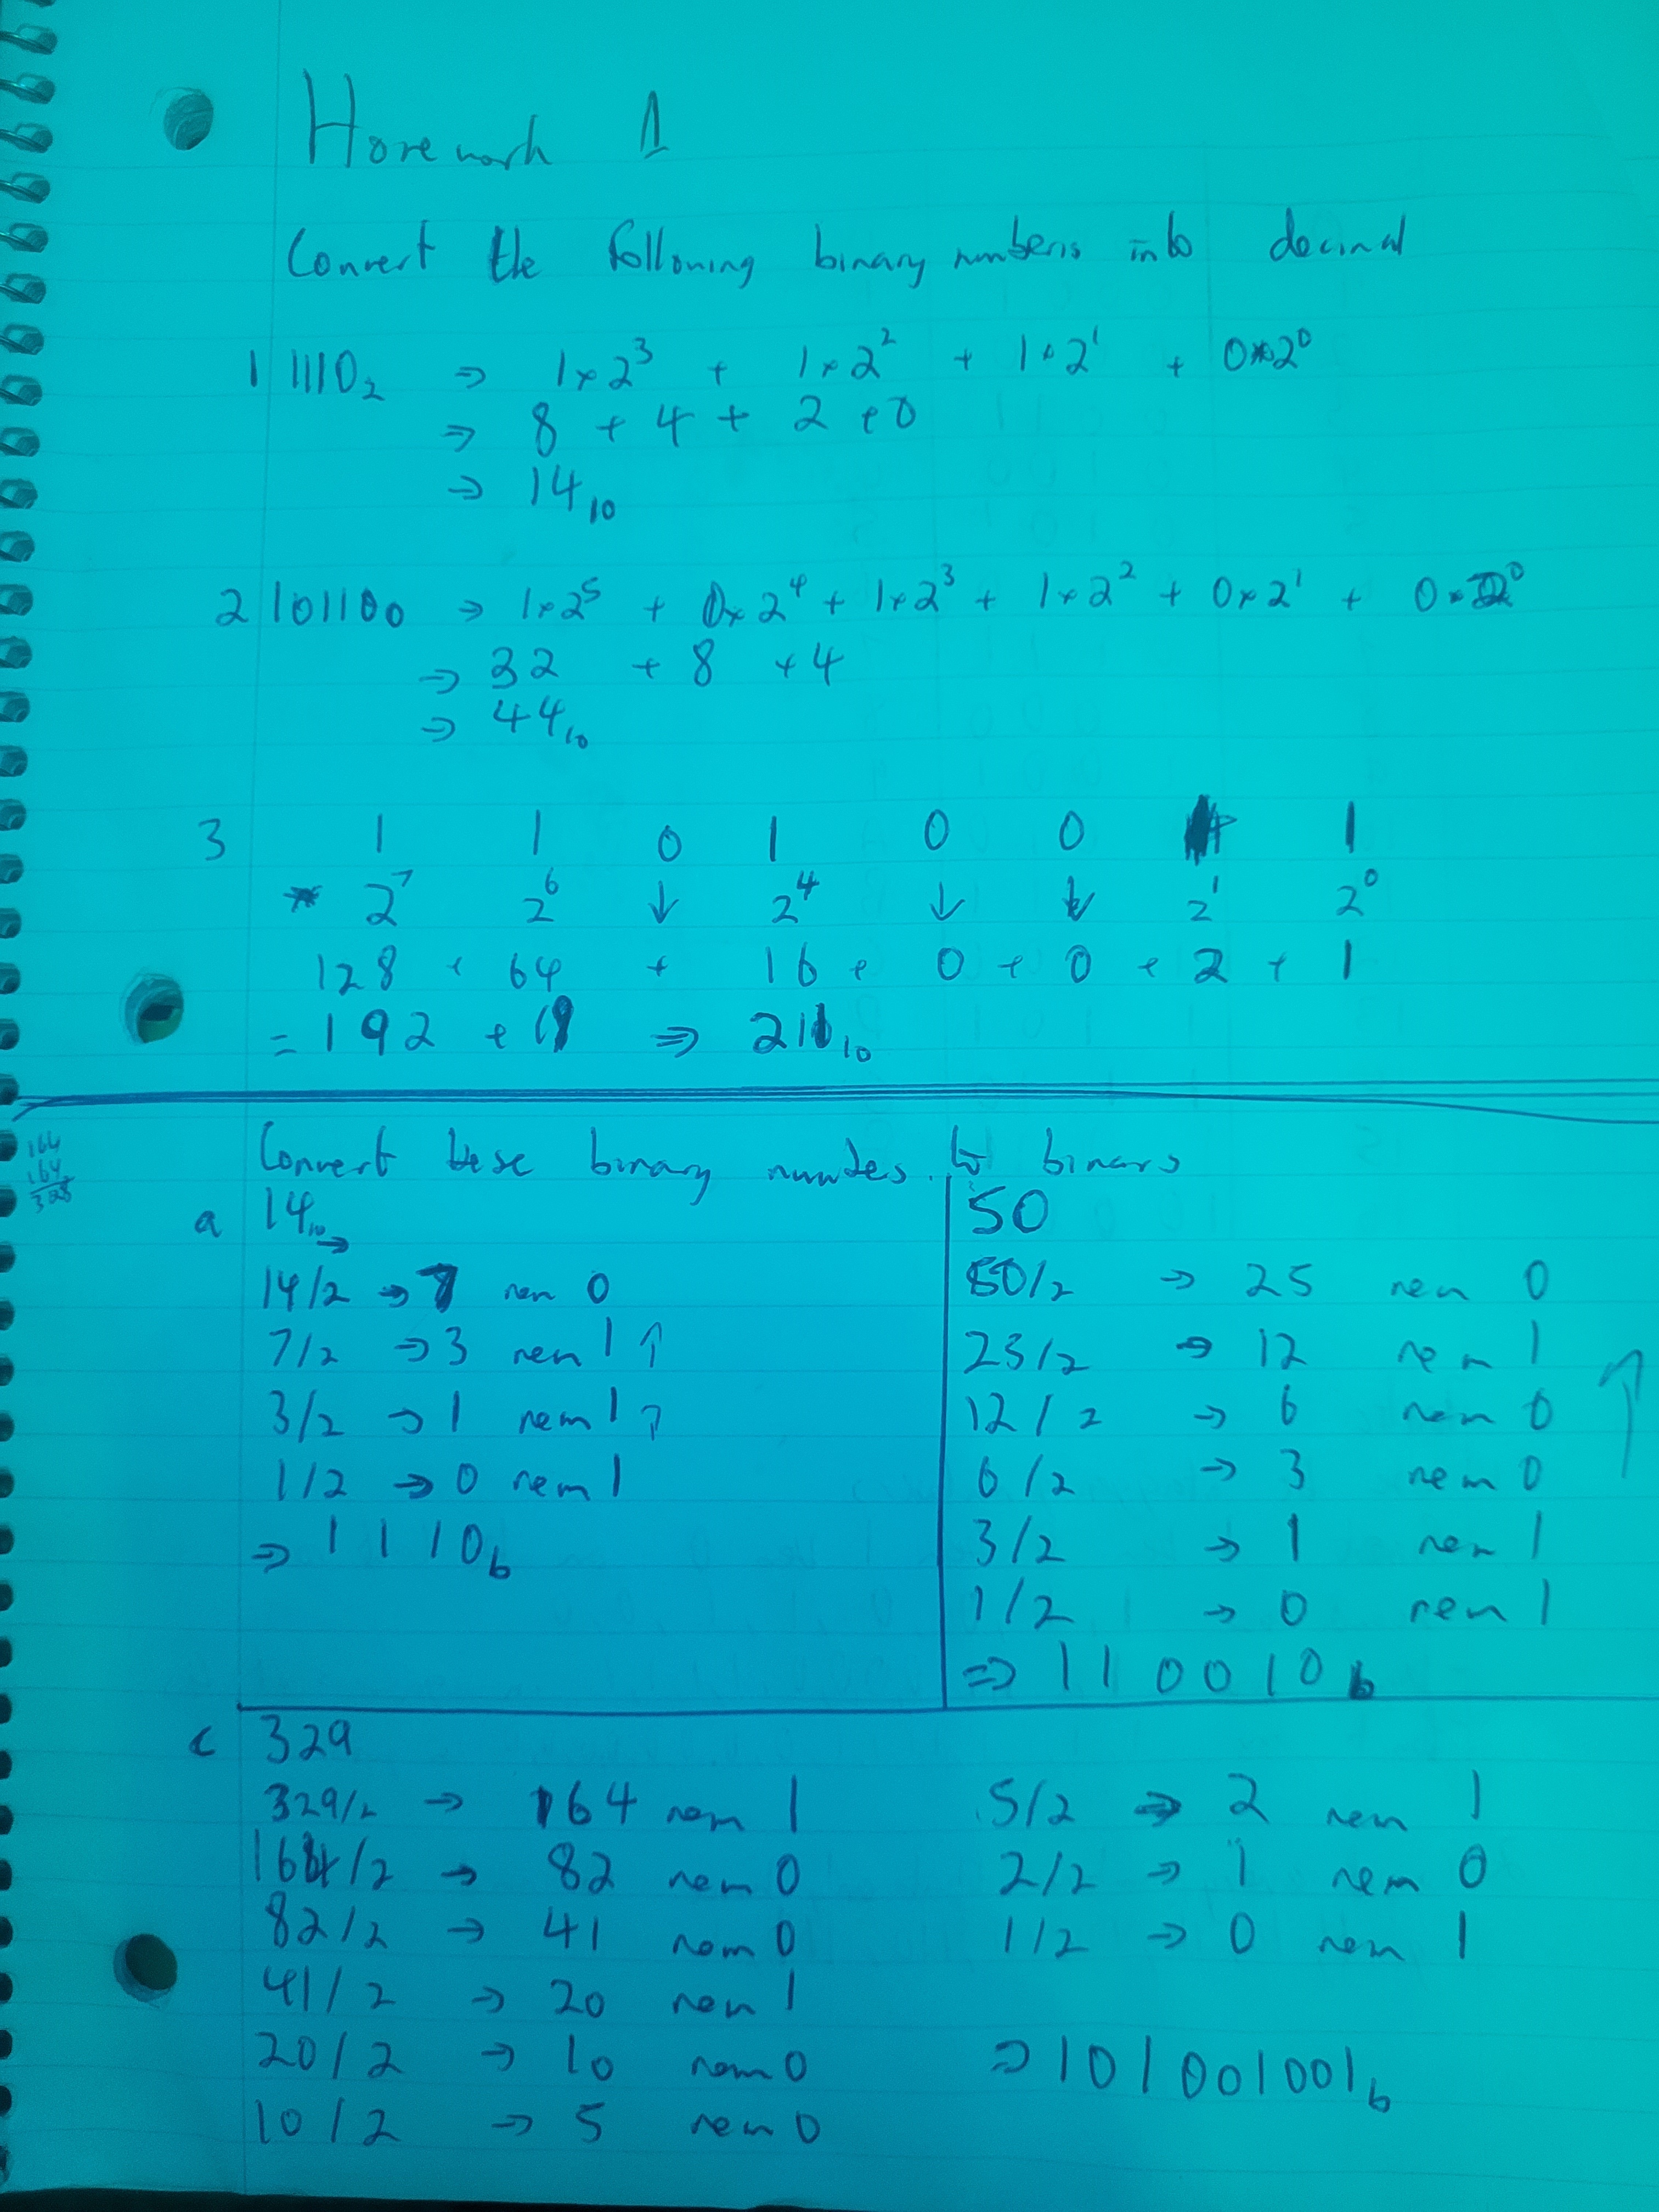 Homework 1
Convert the following binary numbers into decimal
1 1110₂ ⇒ 1×2³ + 1×2² + 1×2¹ + 0×2⁰
⇒ 8 + 4 + 2 + 0
⇒ 14₁₀
2 101100 ⇒ 1×2⁵ + 0×2⁴ + 1×2³ + 1×2² + 0×2¹ + 0×2⁰
⇒ 32 + 8 + 4
⇒ 44₁₀
3 1 1 0 1 0 0 1 1
* 2⁷ 2⁶ ↓ 2⁴ ↓ ↓ 2¹ 2⁰
128 + 64 + 16 + 0 + 0 + 2 + 1
= 192 + 19 ⇒ 211₁₀
164
164
328
Convert these binary numbers to binary
a 14₁₀
→
14/2 → 7 rem 0
7/2 → 3 rem 1 ↑
3/2 → 1 rem 1 ↑
1/2 → 0 rem 1
⇒ 1110b
50
50/2 → 25 rem 0
25/2 → 12 rem 1
12/2 → 6 rem 0
6/2 → 3 rem 0
3/2 → 1 rem 1
1/2 → 0 rem 1
⇒ 110010b
c 329
329/2 → 164 rem 1
164/2 → 82 rem 0
82/2 → 41 rem 0
41/2 → 20 rem 1
20/2 → 10 rem 0
10/2 → 5 rem 0
5/2 → 2 rem 1
2/2 → 1 rem 0
1/2 → 0 rem 1
⇒ 101001001b